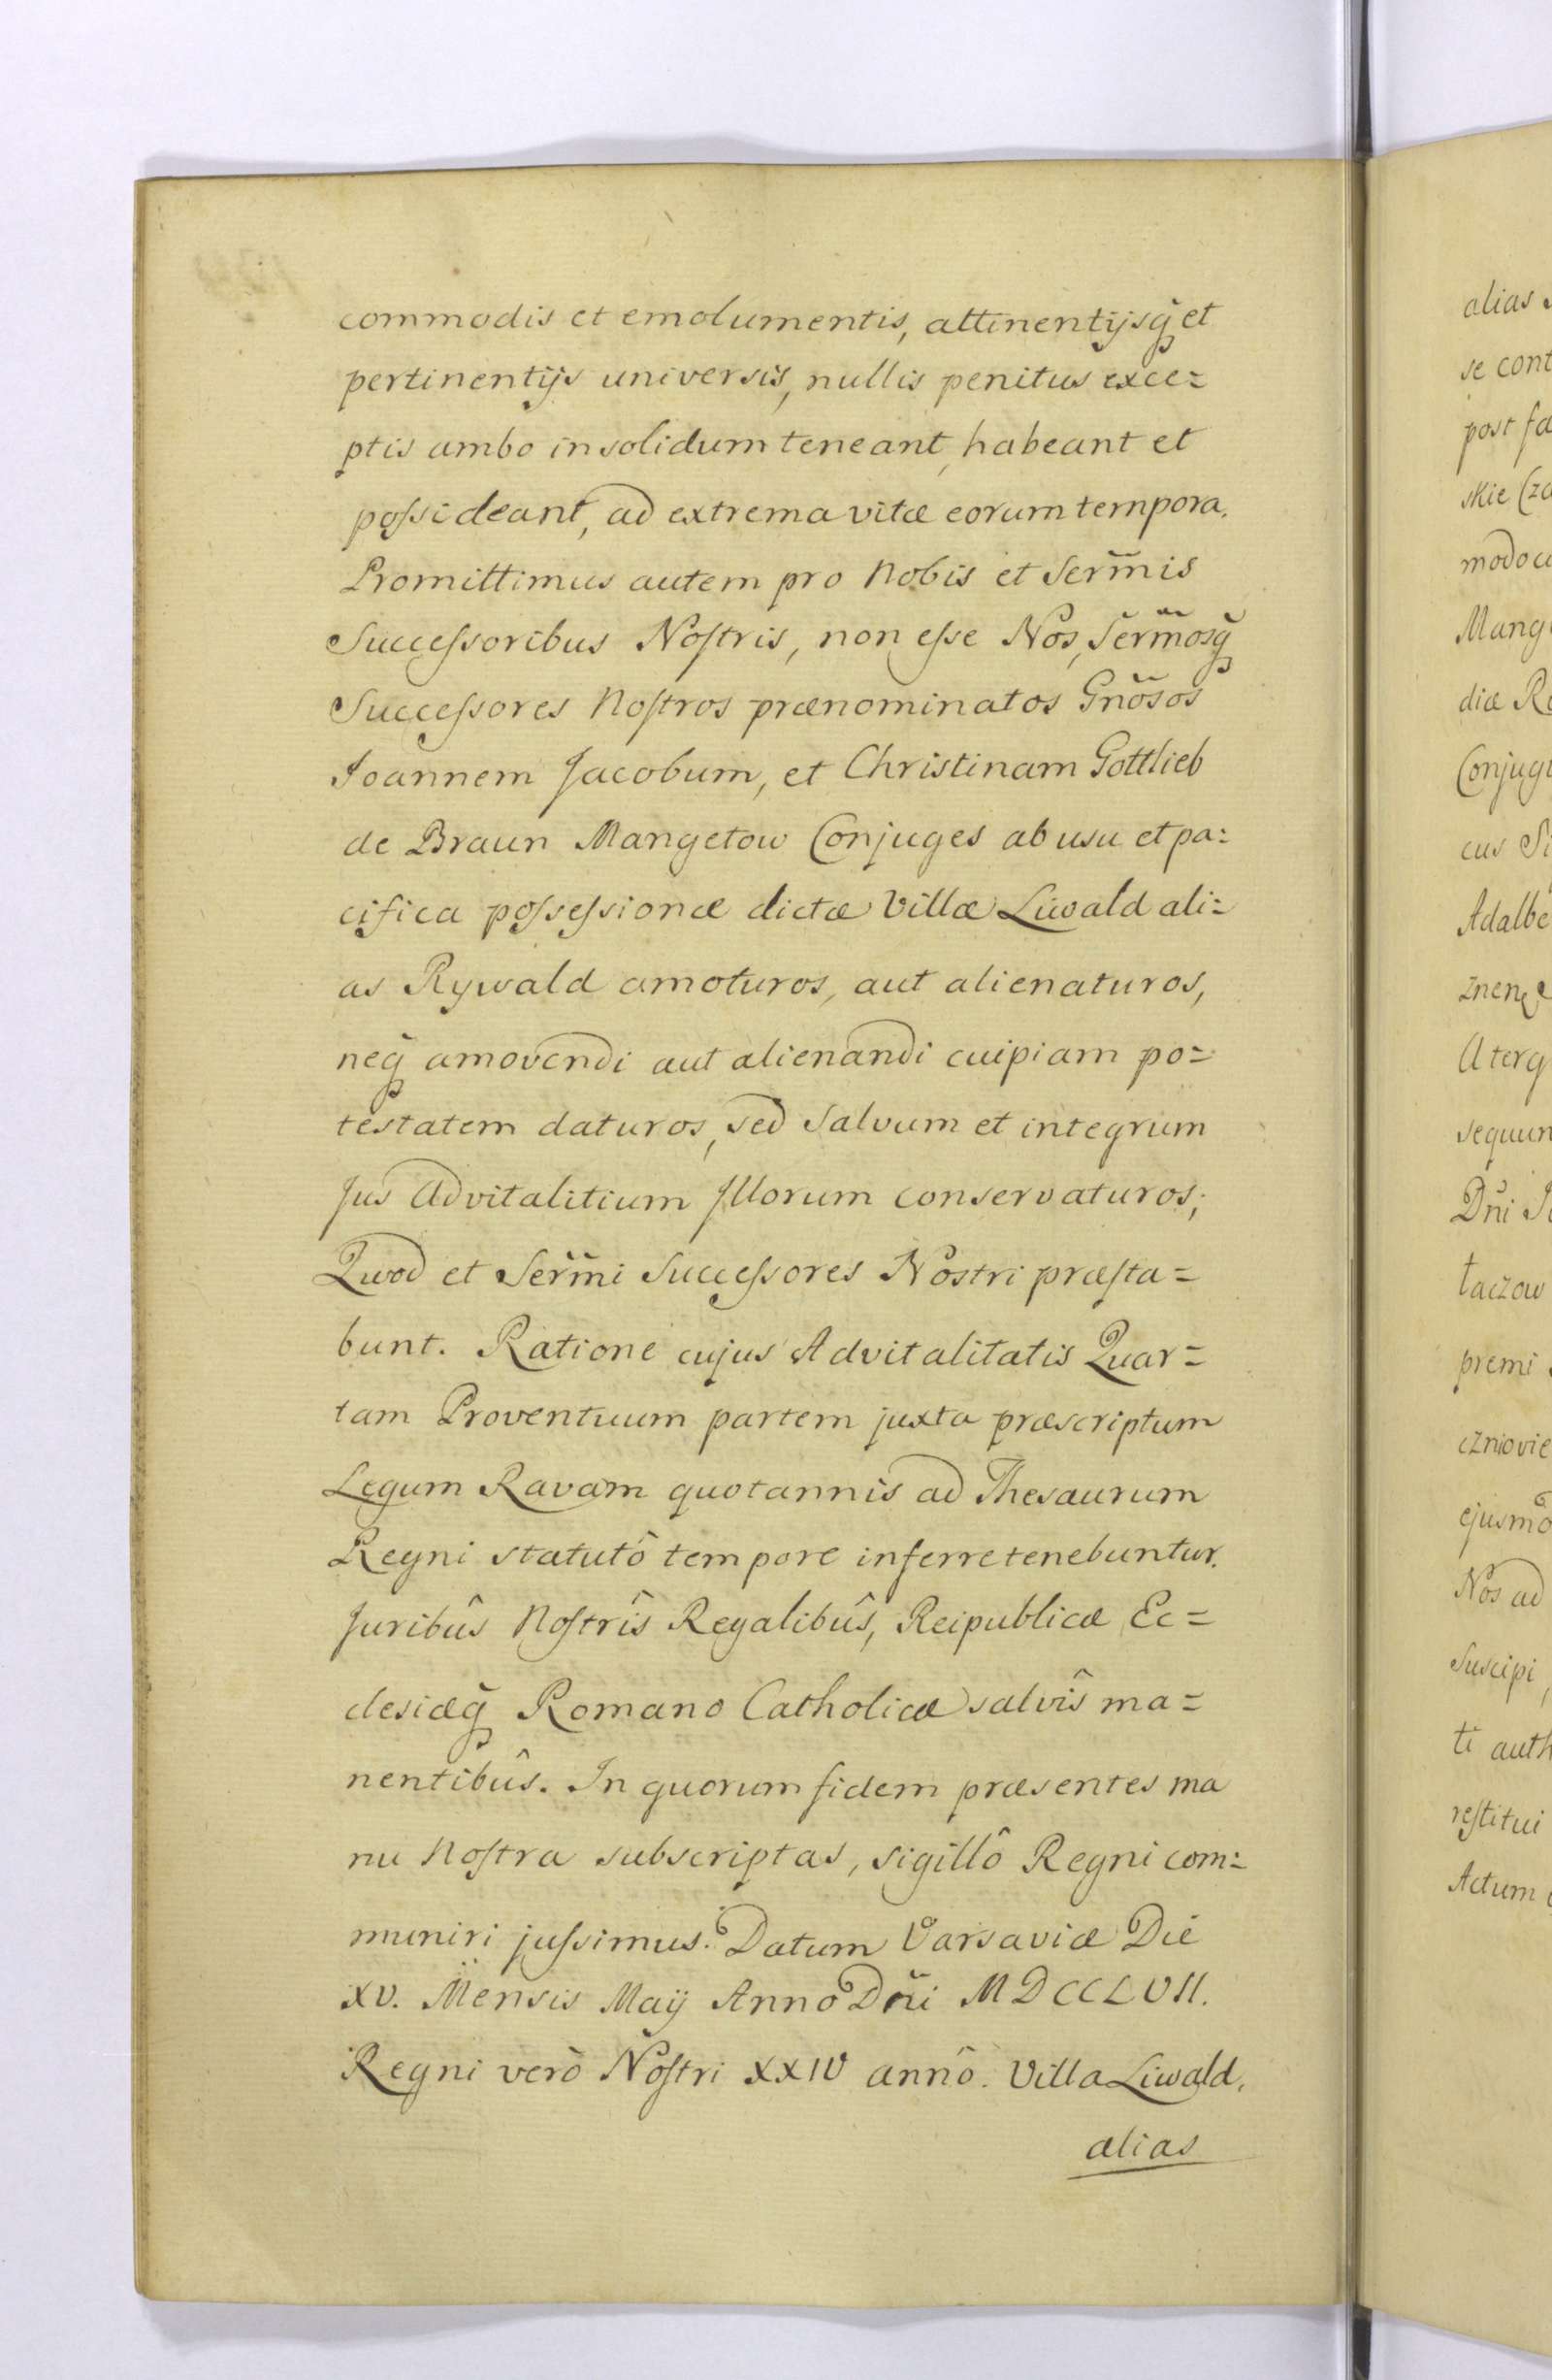 commodis et emolumentis, attinentijsq̃ et
pertinentijs universis, nullis penitus exce=
ptis ambo in solidum teneant, habeant et
poſsideant, ad extrema vitæ eorum tempora.
Promittimus autem pro Nobis et Serm̃is
Succeſsoribus Noſtris, non eſse Nos, Serm̃osq̃
Succeſsores Noſtros prænominatos Gñosos
Joannem Jacobum, et Christinam Gottlieb
de Braun Mangetow Conjuges ab usu et pa=
cifica poſseſsione dictæ Villæ Liwald ali=
as Rywald amoturos, aut alienaturos,
neq̃ amovendi aut alienandi cuipiam po=
testatem daturos, sed salvum et integrum
Jus Advitalitium Jllorum conservaturos;
Quod et Serm̃i Succeſsores Nostri præſta=
bunt. Ratione cujus Advitalitatis Quar=
tam Proventuum partem juxta præscriptum
Legum Ravam quotannis ad Thesaurum
Regni statutô tempore inferre tenebuntur.
Juribûs Noſtrîs Regalibûs, Reipublicæ Ec=
clesiæq̃ Romano Catholicæ salvîs ma=
nentibûs. In quorum fidem præsentes ma
nu Noſtra subscriptas, sigillô Regni com=
muniri juſsimus. Datum Varsaviæ Die
XV. Mensis Maÿ Anno Dñi MDCCLVII.
Regni verò Noſtri XXIV annô. Villa Liwald,
alias
alias
se cont
post fa
skie (za
modo cu
Mang
diæ R
Conjug
cus S
Adalbe
znen
Uterq
sequun
Dñi J
taczow
premi
cznovie
ejusmo
Nos ad
Suscipi,
ti auth
reſtitui
Actum